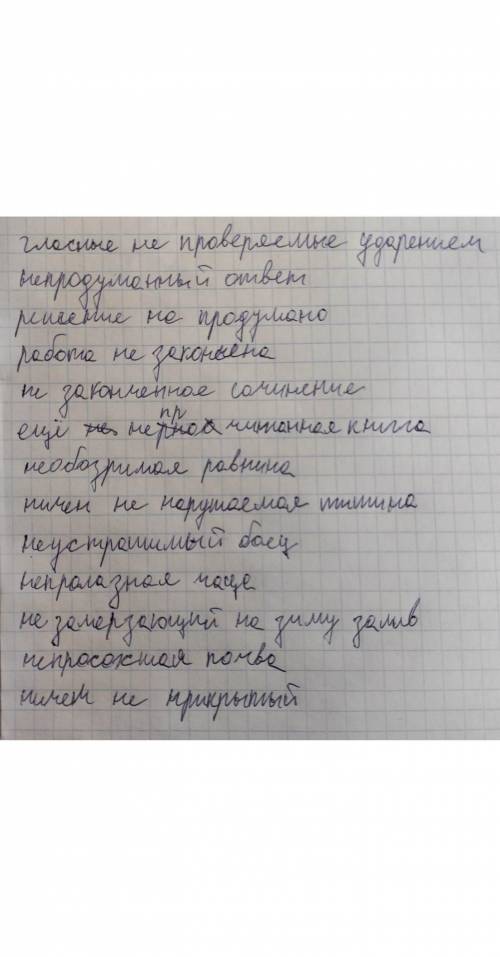 гласные не проверяемые ударением
непродуманный ответ
решение не продумано
работа не закончена
не законченное сочинение
ещё не прочитанная книга
необозримая равнина
ничем не нарушаемая тишина
неустрашимый боец
непролазная чаща
не замерзающий на зиму залив
непросохшая почва
ничем не прикрытый